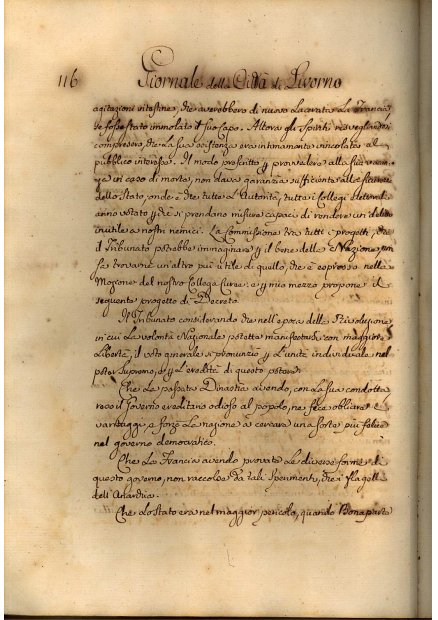 116 Giornale della Città di Livorno
agitazioni intestine, che averebbero di nuovo lacerata la Francia
se fosse stato immolato il suo Capo. Allora gli Spiriti risvegliandosi
compresero, che la sua esistenza era intimamente vincolata al
pubblico interesse. Il modo prescritto p provvedere alla sua
in caso di morte, non dava garanzia sufficiente alla
dello Stato, onde è che tutte le Autorità, tutti i Collegi Elettorali
anno votato p che si prendano misure capaci di rendere un delitto
inutile a nostri nemici. La Commissione tra tutti i progetti, che
il Tribunato potrebbe immaginare p il bene della Nazione, non
sa trovarne un'altro più utile di quello, che è espresso nella
Mozione del nostro Collega Curee: e p mio mezzo propone il
seguente progetto di Decreto.
Il Tribunato considerando che nell'epoca della Rivoluzione
in cui la volontà Nazionale potette manifestarsi con maggior
libertà, il voto generale si pronunziò p l'unità individuale nel
poter Supremo, e p l'eredità di questo potere.
Che la passata Dinastia avendo, con la sua condotta
reso il Governo ereditario odioso al popolo, ne fece obliare i
vantaggi e forzò la nazione a cercare una sorte più felice
nel governo democratico.
Che la Francia avendo provate le diverse forme di
questo governo, non raccolse da tali sperimenti, che i flagelli
dell'Anarchia.
Che lo Stato era nel maggior pericolo, quando Bonaparte